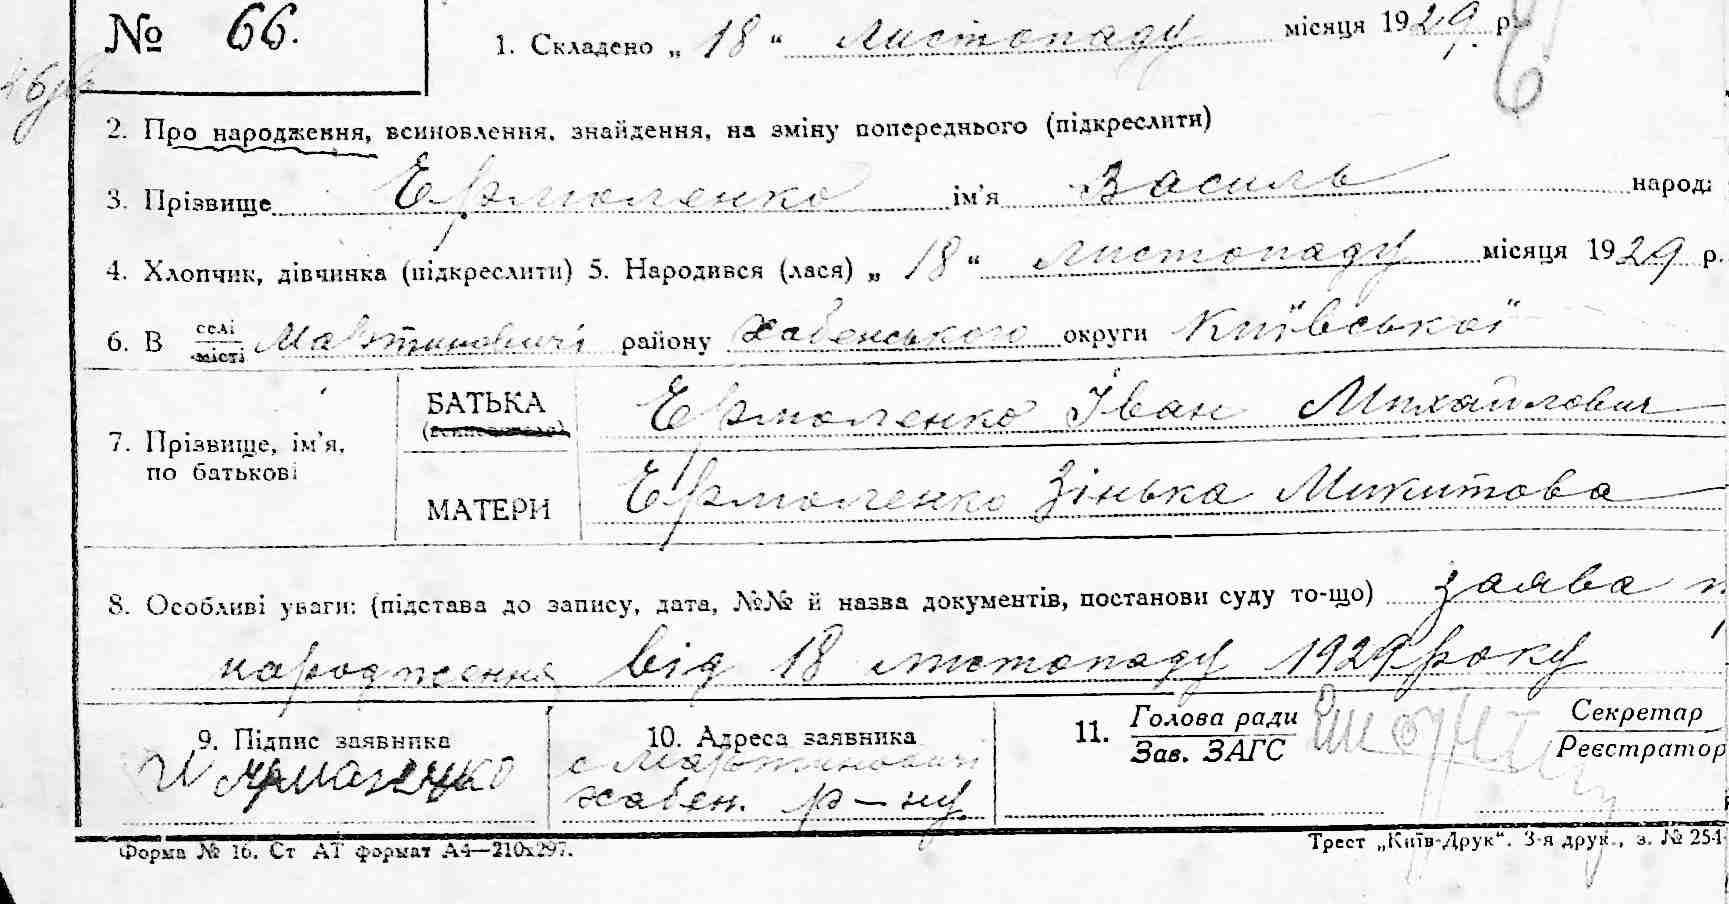 № 66. 1. Складено „ 18 “ листопаду місяця 1929. р.
2. Про народження, всиновлення, знайдення, на зміну попереднього (підкреслити)
3. Прізвище Ермоленко ім’я Василь народ:
4. Хлопчик, дівчинка (підкреслити) 5. Народився (лася) „ 18 “ листопаду місяця 1929 р.
6. В селі/місті Мартиновичі району Хабенського округи Київської
7. Прізвище, ім’я, по батькові
БАТЬКА Ермоленко Іван Михайлович
МАТЕРИ Ермоленко Зінька Микитова
8. Особливі уваги: (підстава до запису, дата, №№ й назва документів, постанови суду то-що) заява
народження від 18 листопаду 1929 року
9. Підпис заявника
10. Адреса заявника
с Мартиновичі
хабен. р-ну
11. Голова ради
Зав. ЗАГС
Секретар
Реєстратор
Форма № 16. Ст АТ формат А4—210х297.
Трест „Київ-Друк“. 3-я друк., з. № 254